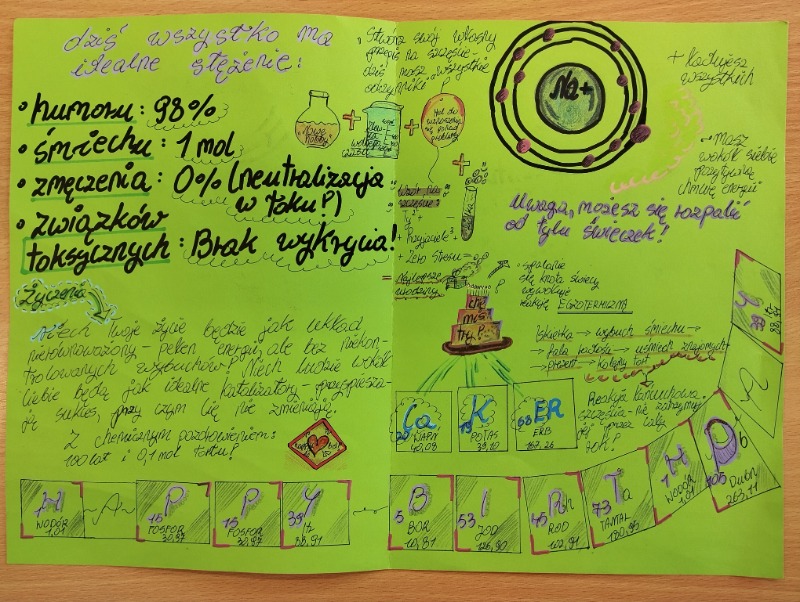 dziś wszystko ma
idealne stężenie:
• humoru: 98%
• śmiechu: 1 mol
• zmęczenia: 0% (neutralizacja
w toku?)
• związków
toksycznych: Brak wykrycia!
Życzenia
Niech twoje życie będzie jak układ
nierównoważony - pełen energii, ale bez niekon-
trolowanych wybuchów? Niech ludzie wokół
Ciebie będą jak idealne katalizatory - przyspiesza-
ją sukces, przy czym się nie zmieniają.
Z chemicznym pozdrowieniem:
100 lat i 0,1 mol tortu?
• Stwórz swój własny
przepis na szczęście-
dziś masz wszystkie
+
+
+
Wzór na
szczęście:
+ Przyjaciele +
+ Zero stresu =
= Najlepsze
urodziny
che
mis
try?
Na+
+ Kadujesz
wszystkich
• Masz
wokół siebie
pozytywną
chmurę energii
Uwaga, możesz się rozpalić
od tylu świeczek!
• Spalanie
się knota świecy
wywołuje
reakcję EGZOTERMICZNĄ
Iskierka → wybuch śmiechu →
→ fala radości → uśmiech znajomych →
→ prezent → kolejny tort
Reakcja łańcuchowa
szczęścia - nie zatrzymuj
jej przez cały
rok?
20 Ca WAPŃ 40,08
19 K POTAS 39,10
68 ER ERB 167,26
H WODÓR 1,01
A
15 P FOSFOR 30,97
15 P FOSFOR 30,97
39 Y It 88,91
5 B BOR 10,81
53 I JOD 126,90
45 Rh ROD 102,91
73 Ta TANTAL 180,95
1 H WODÓR 1,01
105 Db DUBN
A
39 Y It 88,91